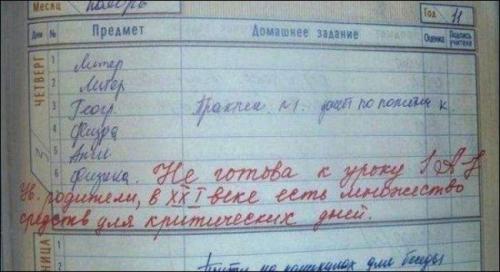 Месяц ноябрь Год 11
Дни № Предмет Домашнее задание Оценка Подпись учителя
ЧЕТВЕРГ
1 Литер
2 Литер
3 Геогр. по
4 Физра
5 Англ
6 Физика. Не готова к уроку
Ув. родители, в XXI веке есть множество
средств для критических дней.
НИЦА
1
2 на каникулах для беседы